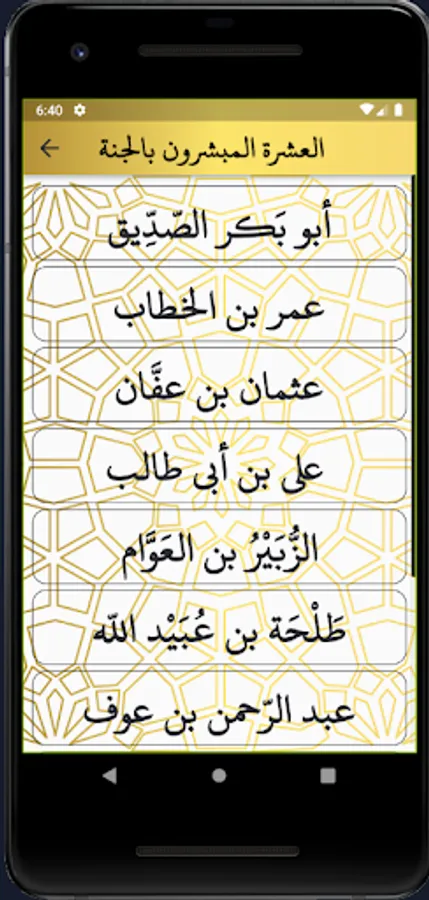 6:40
العشرة المبشرون بالجنة
أبو بَكر الصّدِّيق
عمر بن الخطاب
عثمان بن عفَّان
على بن أبى طالب
الزُّبَيْرُ بن العَوَّام
طَلْحَة بن عُبَيْد الله
عبد الرّحمن بن عوف